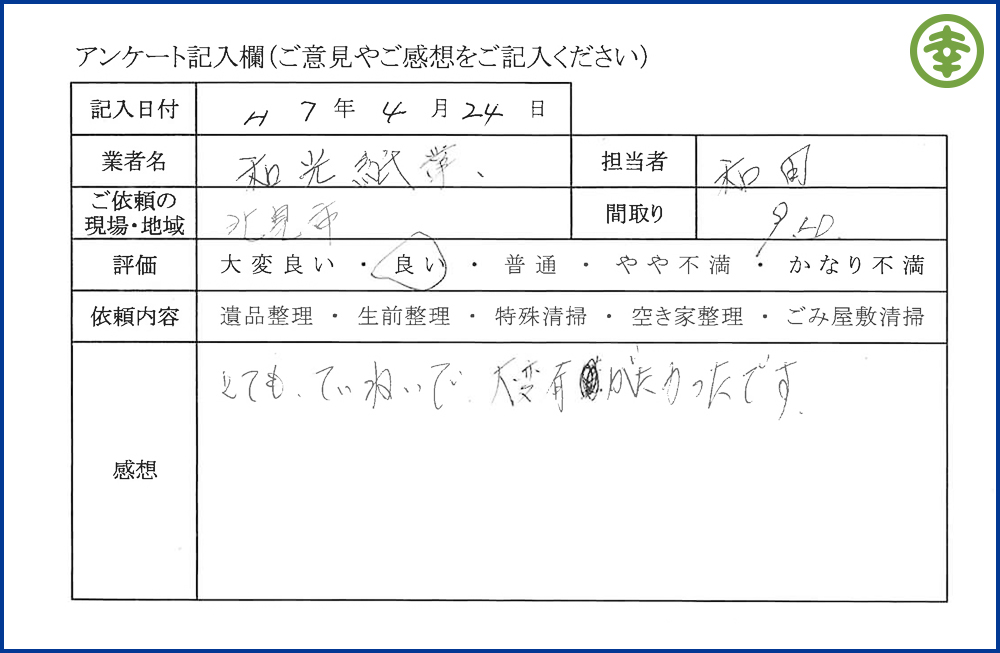 幸
アンケート記入欄(ご意見やご感想をご記入ください)
記入日付 H7年4月24日
業者名 和光紙業、 担当者 和田
ご依頼の現場・地域 北見市 間取り LD.
評価 大変良い ・ 良い ・ 普通 ・ やや不満 ・ かなり不満
依頼内容 遺品整理 ・ 生前整理 ・ 特殊清掃 ・ 空き家整理 ・ ごみ屋敷清掃
感想 とても、ていねいで、大変有がたかったです。